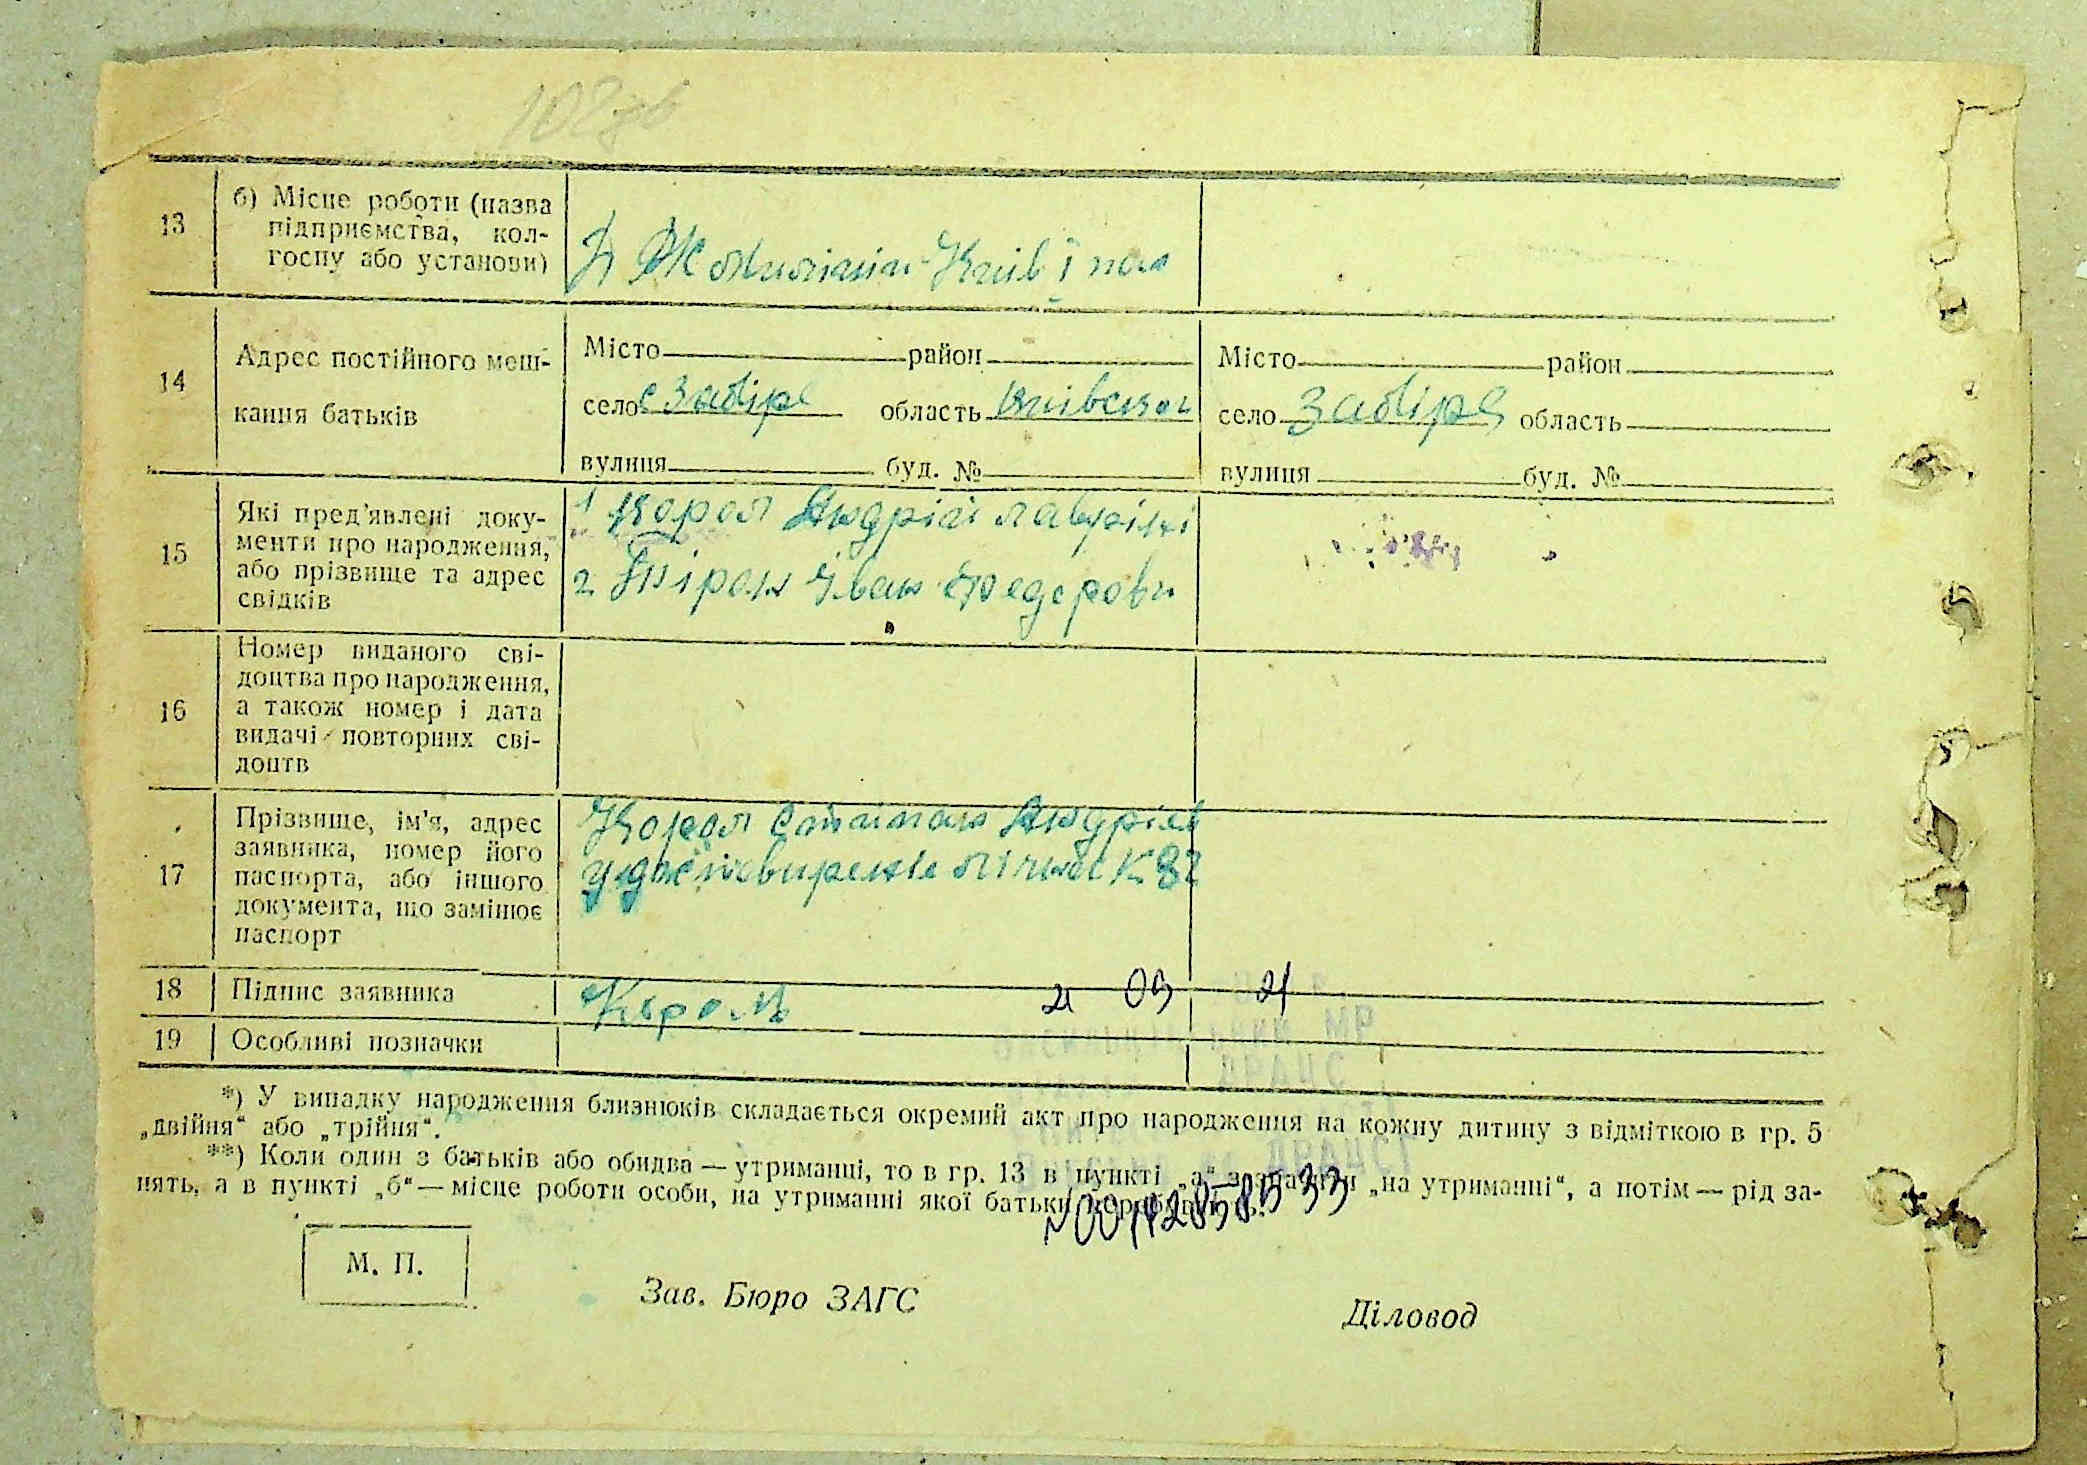 13
б) Місце роботи (назва
підприємства, кол-
госпу або установи)
14
Адрес постійного меш-
кання батьків
Місто район
село с Забіре область Київської
вулиця буд. №
Місто район
село Забіре область
вулиця буд. №
15
Які пред'явлені доку-
менти про народження,
або прізвище та адрес
свідків
1 Корол Андрій
2 Іван Федерови
16
Номер виданого сві-
доцтва про народження,
а також номер і дата
видачі повторних сві-
доцтв
17
Прізвище, ім'я, адрес
заявника, номер його
паспорта, або іншого
документа, що замінює
паспорт
Корол Андрієв
18
Підпис заявника
Король
21 09 21
19
Особливі позначки
*) У випадку народження близнюків складається окремий акт про народження на кожну дитину з відміткою в гр. 5
„двійня“ або „трійня“.
**) Коли один з батьків або обидва — утриманці, то в гр. 13 в пункті „а“ „на утриманні“, а потім — рід за-
нять, а в пункті „б“ — місце роботи особи, на утриманні якої батьки
М. П.
Зав. Бюро ЗАГС
Діловод